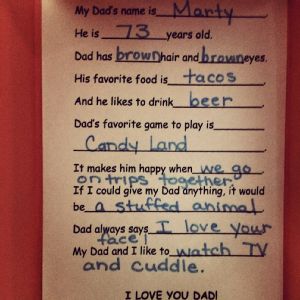 My Dad's name is Marty
He is 73 years old.
Dad has brown hair and brown eyes.
His favorite food is tacos.
And he likes to drink beer.
Dad's favorite game to play is
Candy Land.
It makes him happy when we go
on trips together.
If I could give my Dad anything, it would
be a stuffed animal.
Dad always says I love your
face!
My Dad and I like to watch TV
and cuddle.
I LOVE YOU DAD!